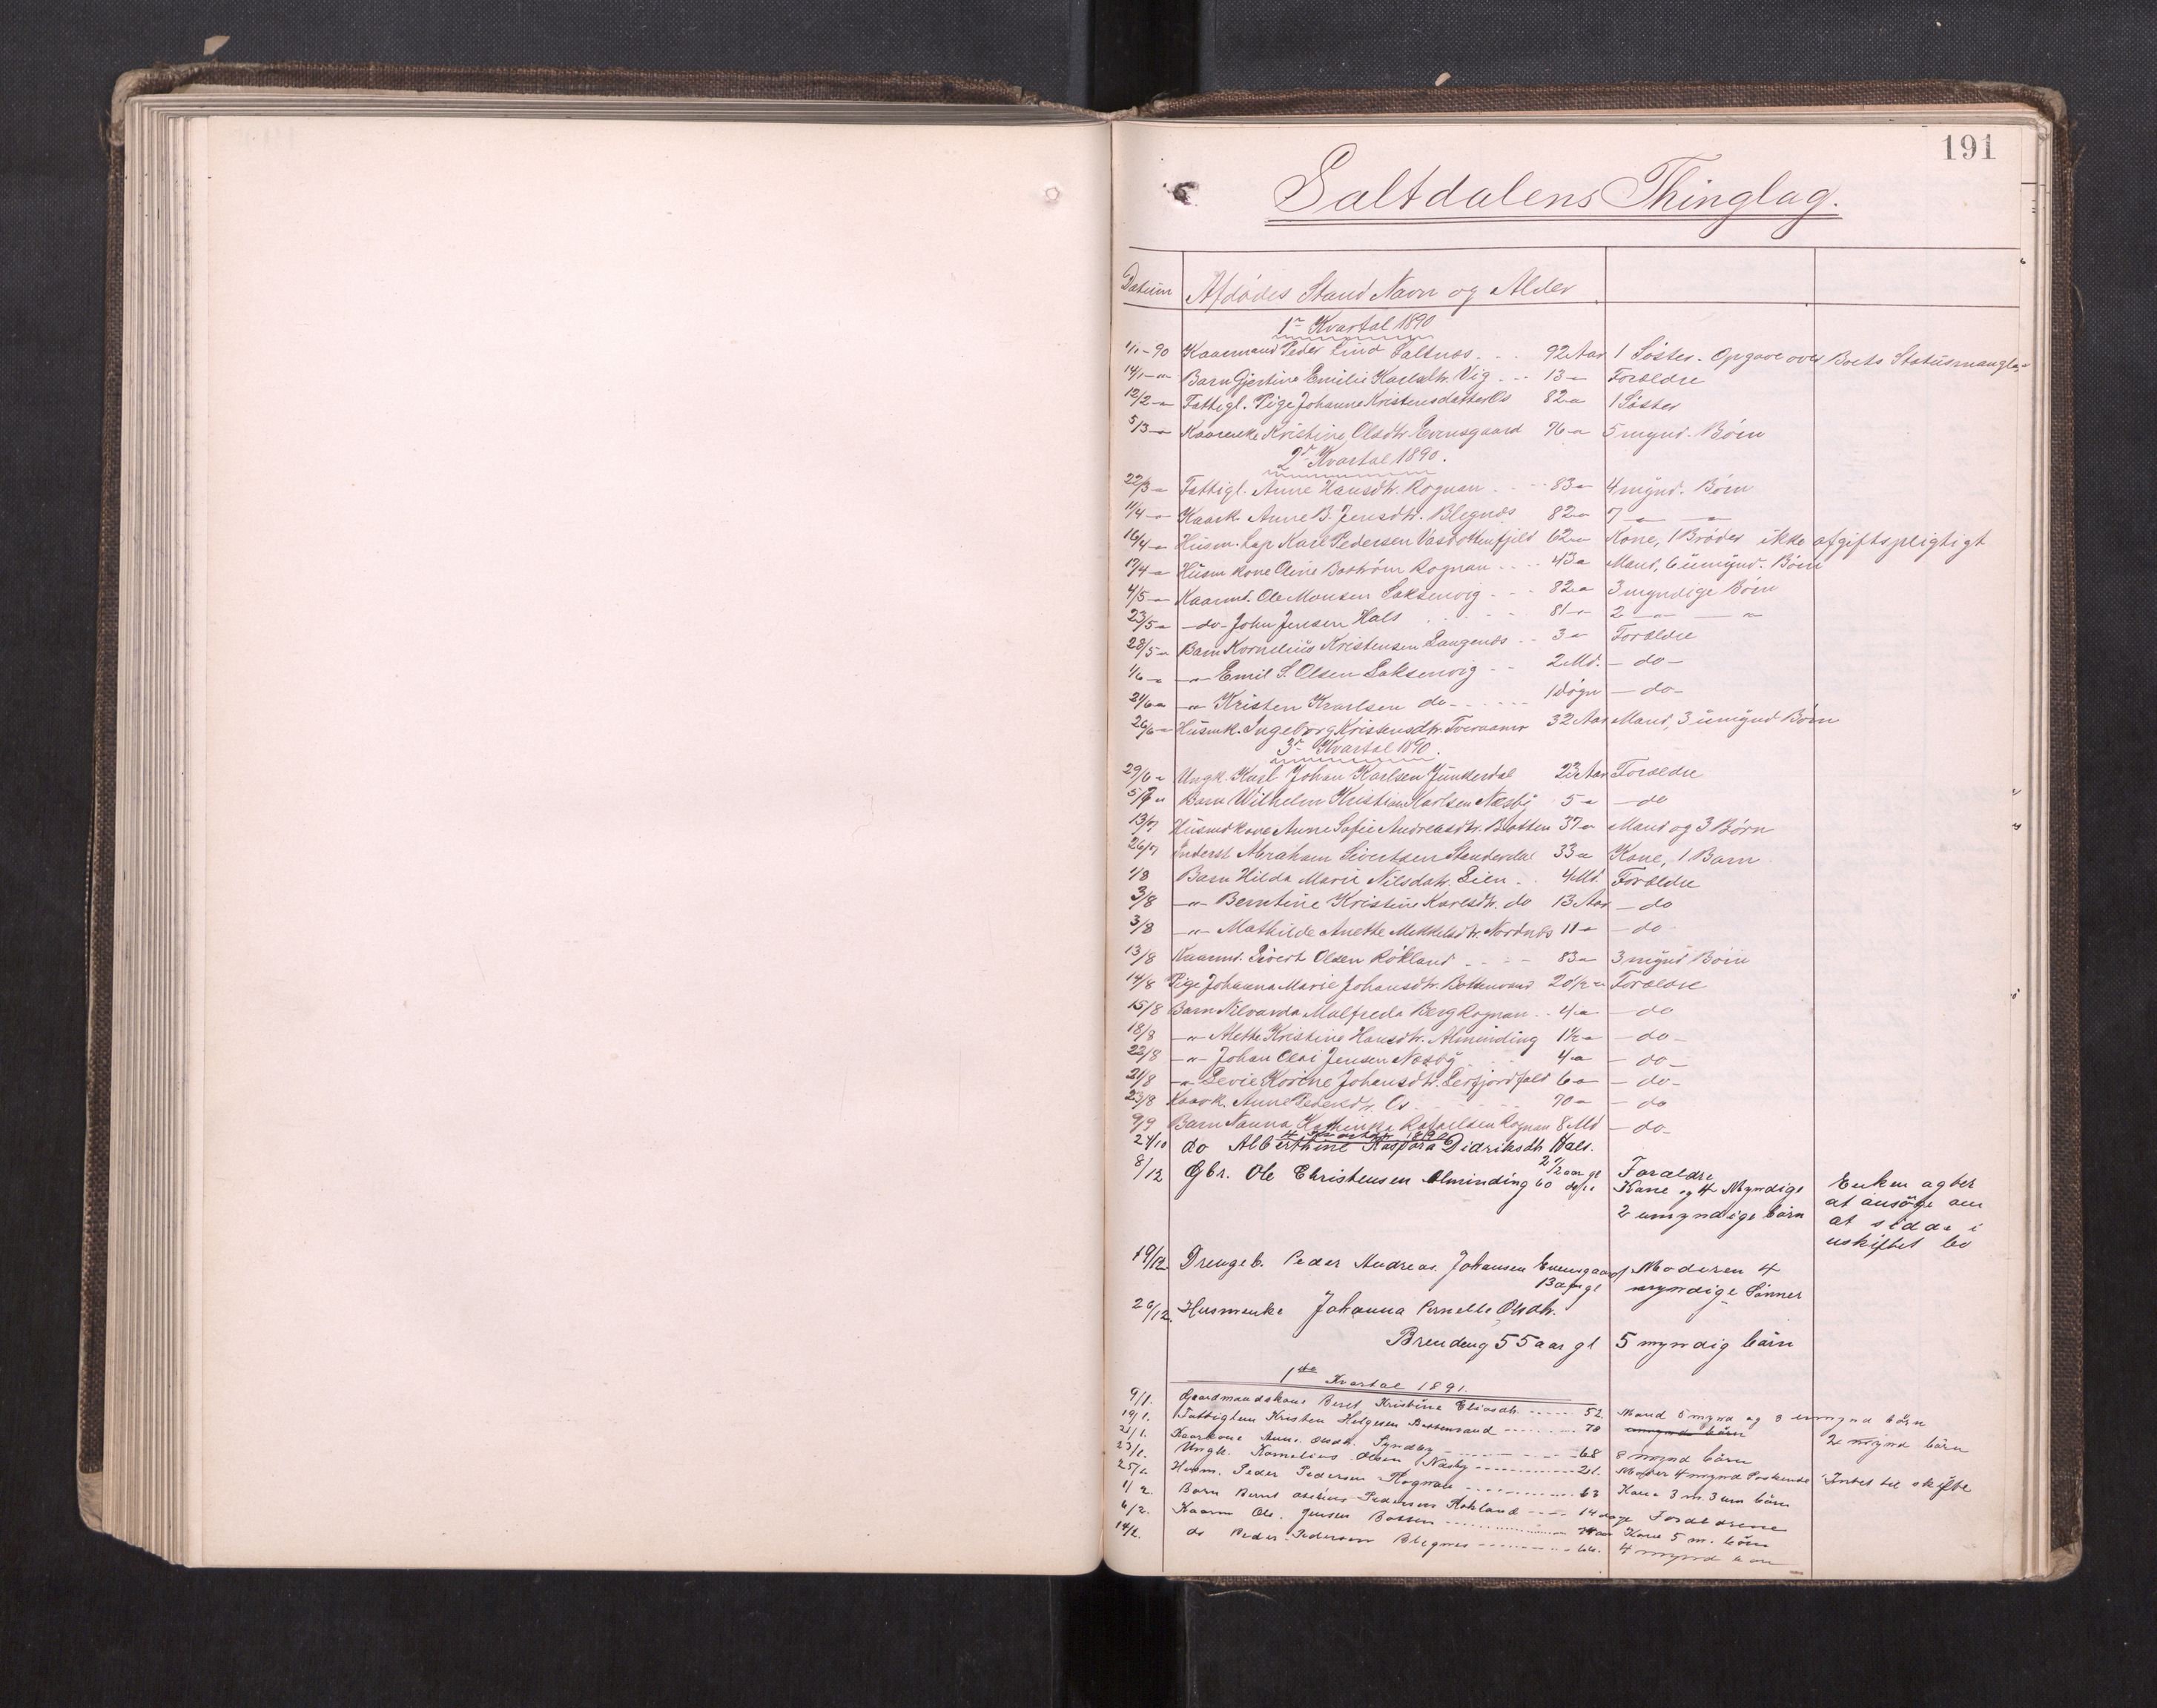 191
Saltdalens Thinglag.
Datum Afdødes Stand Navn og Alder
1ᵉ Kvartal 1890
1/1-90 Kaarmand Peder Lind Saltnæs 92 Aar 1 Søster. Opgave over Boets Status mangler
14/1 -"- Barn Gjertine Emilie Karlsdtr. Vig 13 " Forældre
12/2 -"- Fattigl. Pige Johanne Kristensdatter Os 82 " 1 Søster
5/3 -"- Kaarenke Kristine Olsdtr. Evensgaard 76 " 5 mynd. Børn
2ᵉ Kvartal 1890.
22/3 -"- Fattigl. Anne Hansdtr. Rognan 83 " 4 mynd. Børn
11/4 -"- Kaark. Anne B. Jensdtr. Blegnæs 82 " 7 -"- -"-
16/4 -"- Husm. Lap Karl Pedersen 62 " Kone, 1 Broder ikke afgiftspligtigt
17/4 -"- Husm kone Oline Boström Rognan 43 " Mand, 6 umynd. Børn
4/5 -"- Kaarmd. Ole Monsen Saksenvig 82 " 3 myndige Børn
23/5 " -do- John Jensen Hals 81 " 2 -"- -"-
28/5 -"- Barn Kornelius Kristensen Langenæs 3 " Forældre
1/6 -"- -"- Emil S. Olsen Saksenvig 2 Md. - do -
21/6 " -"- Kristen Karlsen do 1 døgn - do -
26/6 -"- Husmk. Ingeborg Kristensdtr. Tveraamo 32 Aar Mand, 3 umynd Børn
3ᵉ Kvartal 1890.
29/6 " Ungk. Karl Johan Karlsen Junkerdal 23 Aar Forældre
5/7 " Barn Wilhelm Kristian Karlsen Næsby 5 " - do
13/7 Husmdkone Anne Sofie Andreasdtr. Botten 37 " Mand og 3 Børn
26/7 Inderst Abraham Sivertsen 33 " Kone, 1 Barn
1/8 Barn Hilda Marie Nilsdatr. Lien 4 Md. Forældre
3/8 -"- Berntine Kristine Karlsdtr. do 13 Aar - do
3/8 -"- Mathilde Anette Mikkelsdtr. Nordnæs 11 " - do
13/8 Kaarmd. Sivert Olsen Rökland 83 " 3 mynd Børn
14/8 Pige Johanna Marie Johansdtr. Bottenvand 20 1/2 " Forældre
15/8 Barn Malfreda Berg Rognan 4 " - do
18/8 -"- Alette Kristine Hansdtr. Alminding 1 1/2 " - do -
22/8 -"- Johan Olai Jensen Næsby 4 " - do -
21/8 -"- Korine Johansdtr. 6 " - do -
23/8 Kaark. Anne Pedersdtr. Os 70 " - do
9/9 Barn Nanna Kathinka Rafaelsen Rognan 8 Md - do -
4 Kvartal 1890
24/10 do Alberthine Kaspara Didriksdtr Hals.
2 1/2 aar gl Forældre
8/12 Gbr. Ole Christensen Alminding 60 do Kone og 4 Myndige Enken agter
2 umyndige børn at ansøge om
at sidde i
uskiftet bo
19/12 Drengeb. Peder Andreas Johansen Evensgaard Moderen 4
13 aar gl myndige Sönner
26/12. Husmenke Johanna Pernelle Olsdtr.
Brendeng 55 aar gl 5 myndig börn
1ste Kvartal 1891.
9/1. Gaardmandskone Beret Kristine Eliasdtr. 52. Mand 5 mynd og 3 umynd börn
19/1. Fattiglem Kristen Helgesen Bottenvand 70 umynd börn 2 mynd börn
21/1. Kaarkone Anne Olsdtr. 68 8 mynd börn
23/1. Ungk. Kornelius Olsen Næsby 21. Moder 4 mynd Söskende Intet til skifte
25/1. Husm. Peder Pedersen Rognan 63 Kone 3 m. 3 um börn
1/2. Barn Bernt Pedersen Rökland 14 dage Forældrene
6/2. Kaarm Ole Jensen Botten aar Kone 5 m. börn
14/2. do Peder Pedersen Blegnes 66. 4 mynd börn